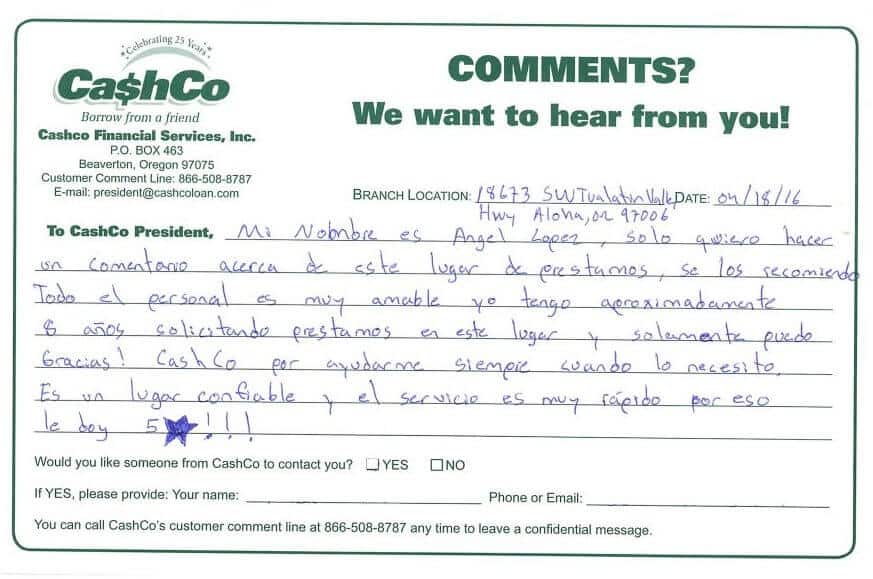 Celebrating 25 Years
Ca$hCo
Borrow from a friend
Cashco Financial Services, Inc.
P.O. BOX 463
Beaverton, Oregon 97075
Customer Comment Line: 866-508-8787
E-mail: president@cashcoloan.com
COMMENTS?
We want to hear from you!
BRANCH LOCATION: 18673 SW Tualatin Valley DATE: 04/18/16
Hwy Aloha, OR 97006
To CashCo President, Mi Nobnbre es Angel Lopez, solo quiero hacer
un comentario acerca de este lugar de prestamos, se los recomiendo
Todo el personal es muy amable yo tengo aproximadamente
8 años solicitando prestamos en este lugar y solamente puedo
Gracias! CashCo por ayudarme siempre cuando lo necesito.
Es un lugar confiable y el servicio es muy rápido por eso
le doy 5★!!!
Would you like someone from CashCo to contact you? ☐YES ☐NO
If YES, please provide: Your name: Phone or Email:
You can call CashCo's customer comment line at 866-508-8787 any time to leave a confidential message.